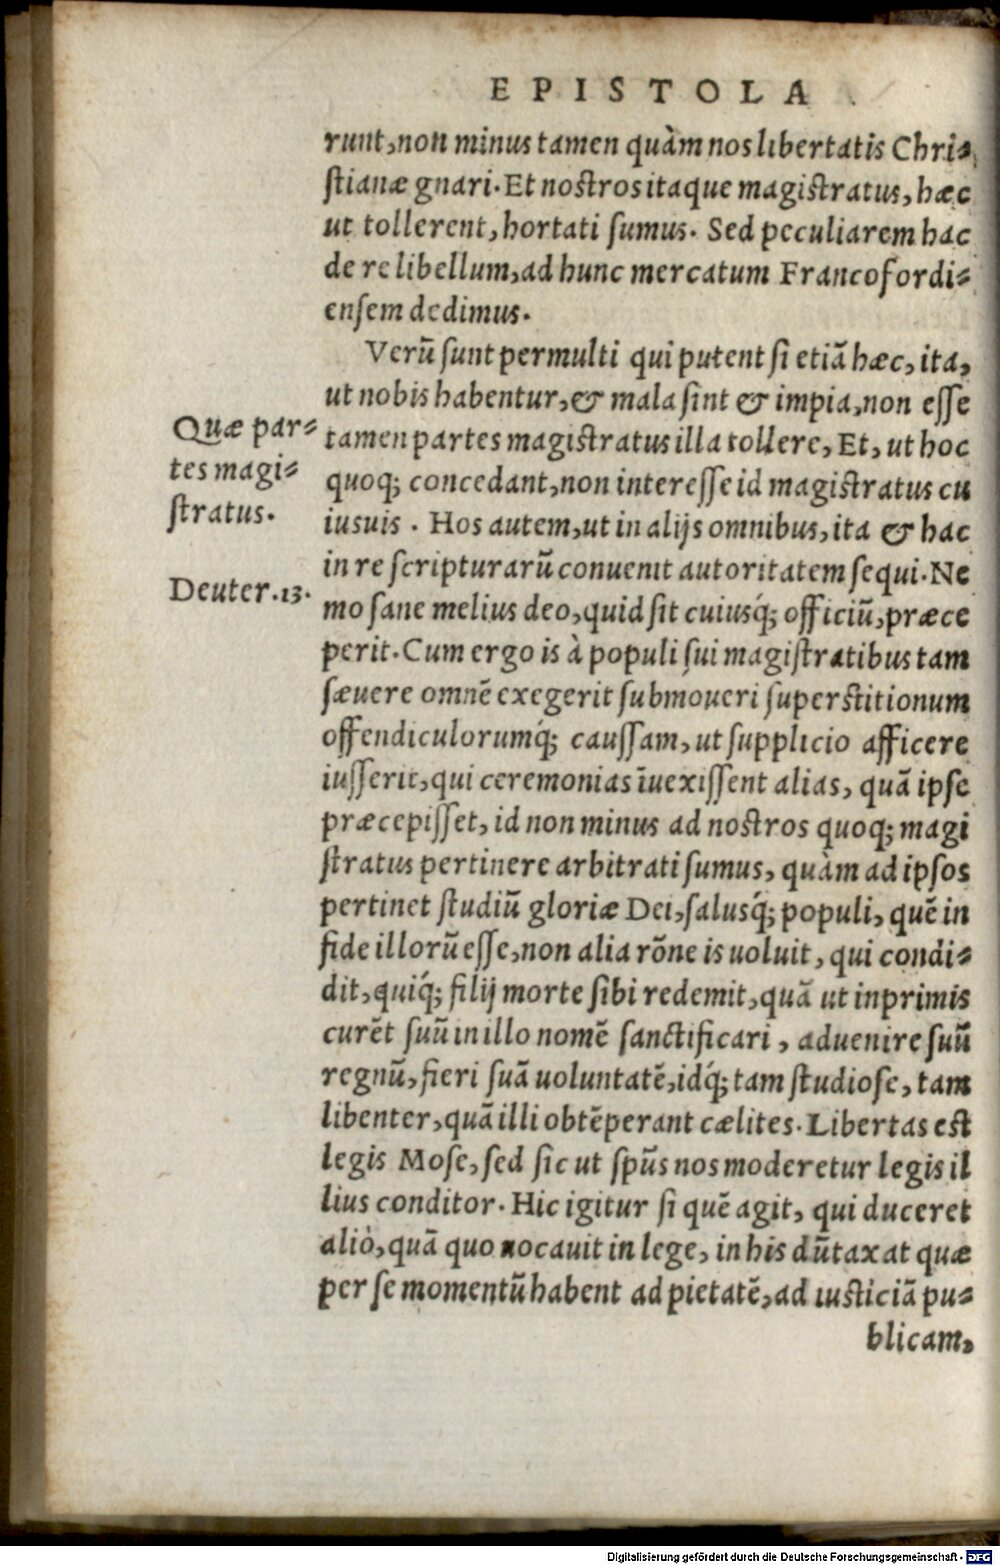 EPISTOLA
runt, non minus tamen quàm nos libertatis Chri-
stianæ gnari. Et nostros itaque magistratus, hæc
ut tollerent, hortati sumus. Sed peculiarem hac
de re libellum, ad hunc mercatum Francofordi-
ensem dedimus.
Verū sunt permulti qui putent si etiā hæc, ita,
ut nobis habentur, & mala sint & impia, non esse
Quæ par-
tes magi-
stratus.
tamen partes magistratus illa tollere, Et, ut hoc
quoq; concedant, non interesse id magistratus cu
iusuis. Hos autem, ut in alijs omnibus, ita & hac
in re scripturarū conuenit autoritatem sequi. Ne
Deuter. 13.
mo sane melius deo, quid sit cuiusq́; officiū, præce
perit. Cum ergo is à populi sui magistratibus tam
sæuere omnē exegerit submoueri superstitionum
offendiculorumq́; caussam, ut supplicio afficere
iusserit, qui ceremonias īuexissent alias, quā ipse
præcepisset, id non minus ad nostros quoq; magi
stratus pertinere arbitrati sumus, quàm ad ipsos
pertinet studiū gloriæ Dei, salusq́; populi, quē in
fide illorū esse, non alia rōne is uoluit, qui condi-
dit, quiq́; filij morte sibi redemit, quā ut inprimis
curēt suū in illo nomē sanctificari, aduenire suū
regnū, fieri suā uoluntatē, idq́; tam studiose, tam
libenter, quā illi obtēperant cælites. Libertas est
legis Mose, sed sic ut spūs nos moderetur legis il
lius conditor. Hic igitur si quē agit, qui duceret
aliò, quā quo uocauit in lege, in his dūtaxat quæ
per se momentū habent ad pietatē, ad iusticiā pu-
blicam,
Digitalisierung gefördert durch die Deutsche Forschungsgemeinschaft - DFG